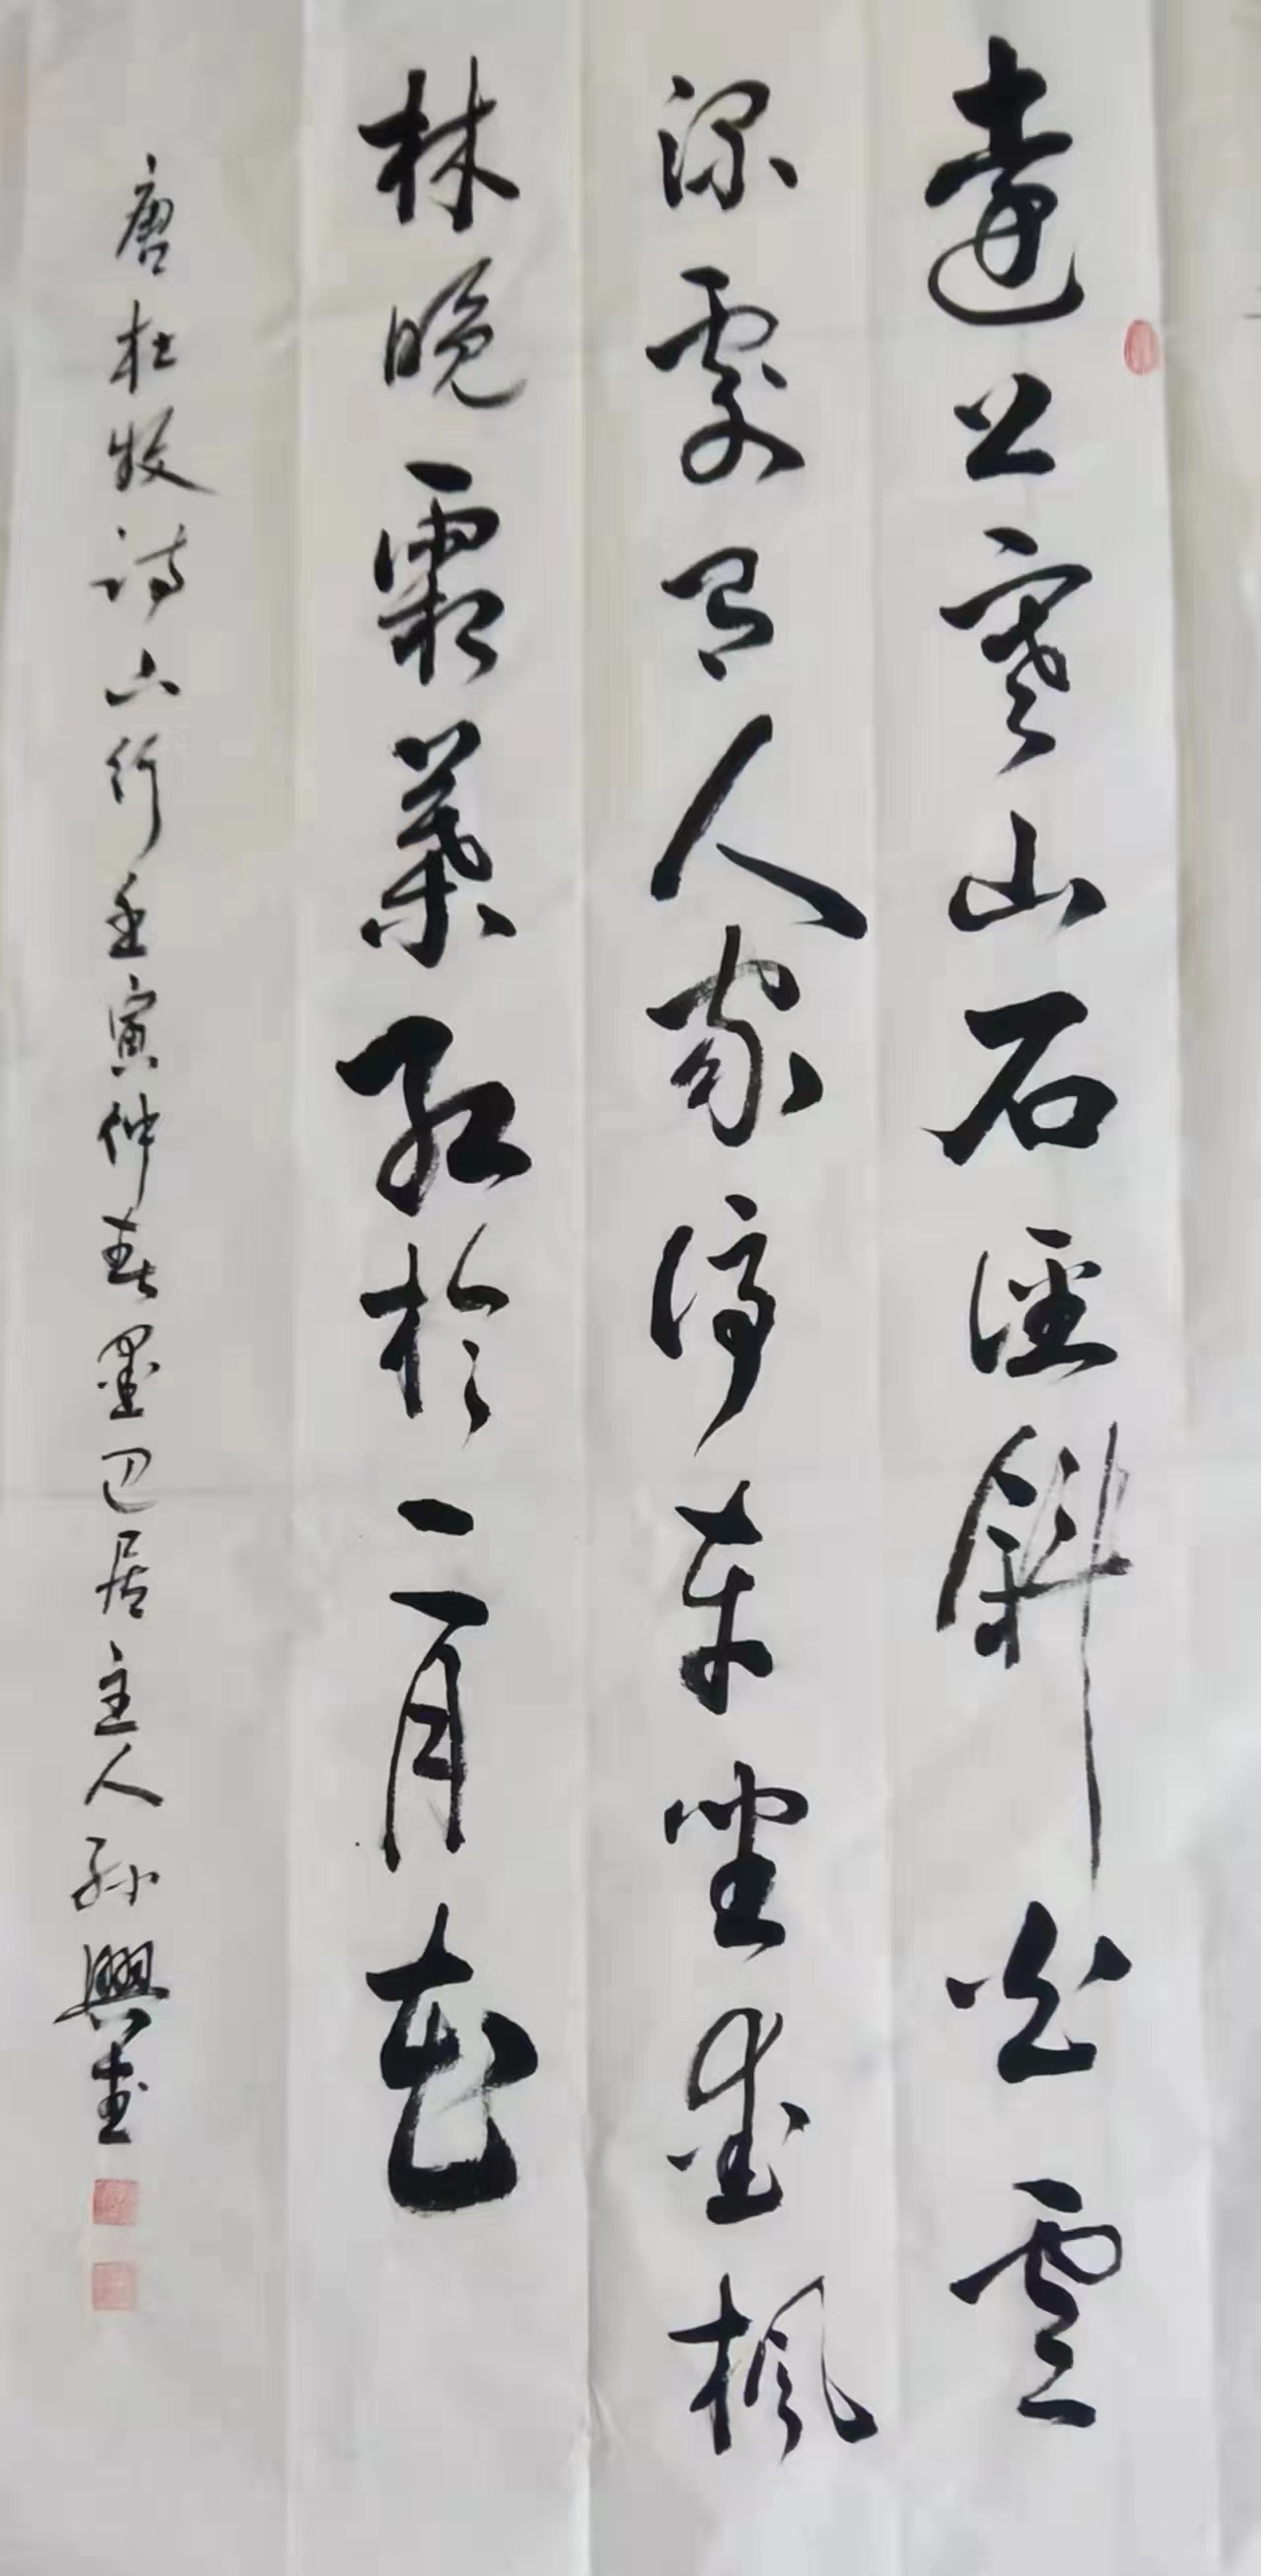 遠上寒山石徑斜白雲
深處有人家停車坐愛楓
林晚霜葉紅於二月花
唐杜牧詩山行壬寅仲春墨边居主人孫興武